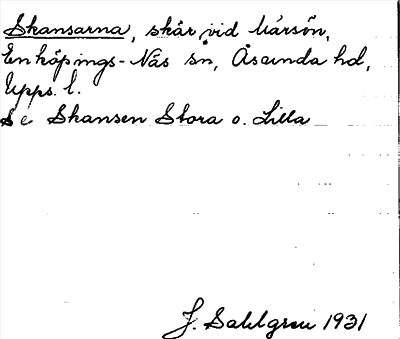 Skansarna, skär vid Vårsön,
Enköpings-Näs sn, Åsunda hd,
Upps. l.
Se Skansen Stora o. Lilla
J. Sahlgren 1931